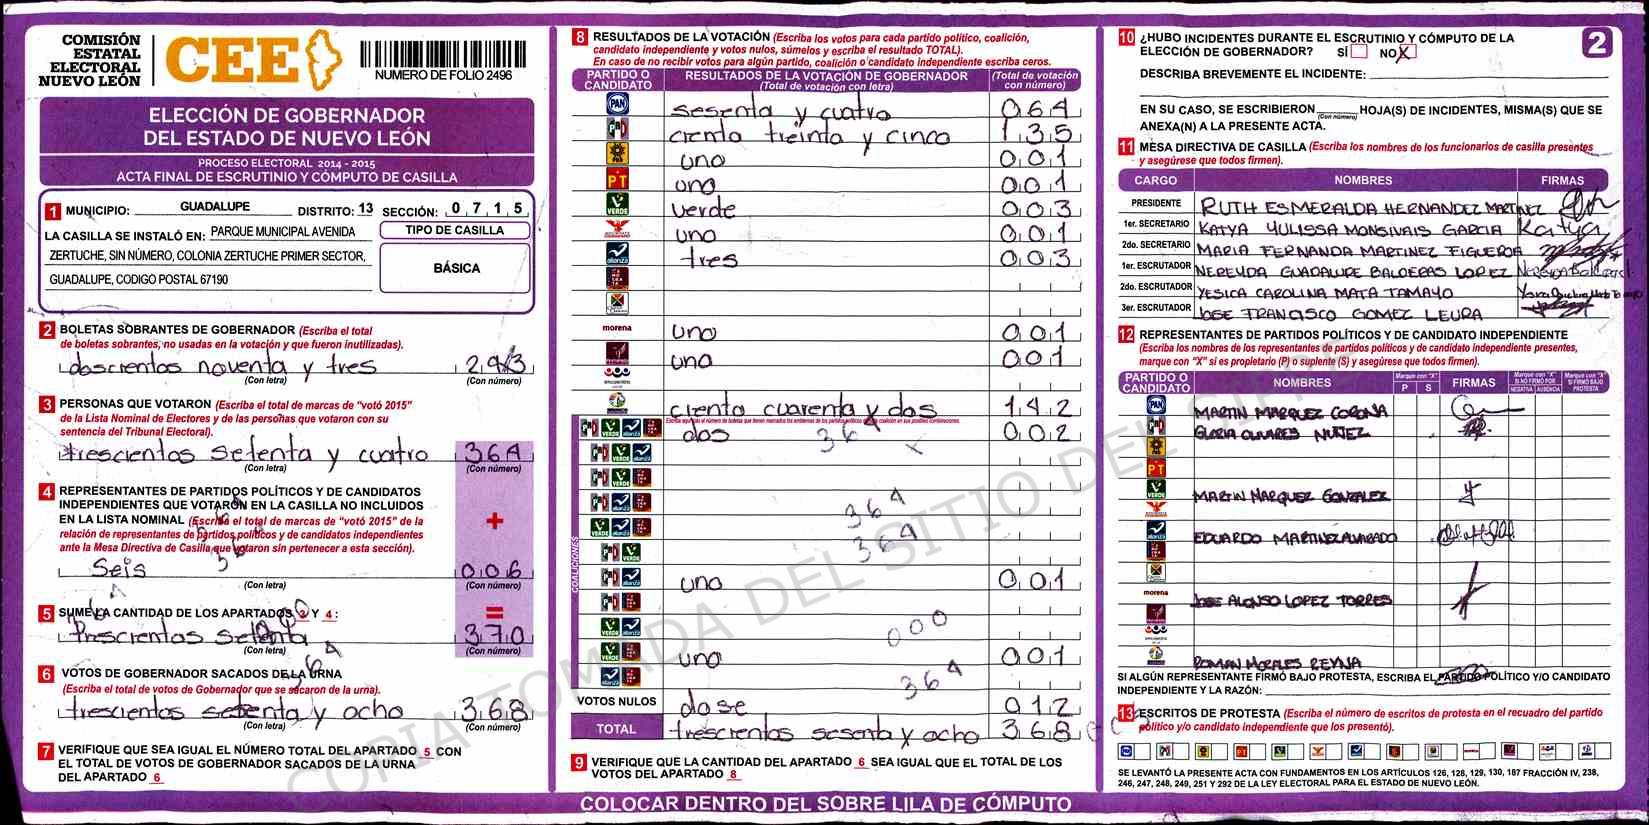 COMISIÓN
ESTATAL
ELECTORAL
NUEVO LEÓN
CEE
NUMERO DE FOLIO 2496
ELECCIÓN DE GOBERNADOR
DEL ESTADO DE NUEVO LEÓN
PROCESO ELECTORAL 2014 - 2015
ACTA FINAL DE ESCRUTINIO Y CÓMPUTO DE CASILLA
1 MUNICIPIO: GUADALUPE DISTRITO: 13 SECCIÓN: 0 7 1 5
LA CASILLA SE INSTALÓ EN: PARQUE MUNICIPAL AVENIDA
ZERTUCHE, SIN NÚMERO, COLONIA ZERTUCHE PRIMER SECTOR,
GUADALUPE, CODIGO POSTAL 67190
TIPO DE CASILLA
BÁSICA
2 BOLETAS SOBRANTES DE GOBERNADOR (Escriba el total
de boletas sobrantes, no usadas en la votación y que fueron inutilizadas).
doscientos noventa y tres 293
(Con letra) (Con número)
3 PERSONAS QUE VOTARON (Escriba el total de marcas de "votó 2015"
de la Lista Nominal de Electores y de las personas que votaron con su
sentencia del Tribunal Electoral).
trescientos setenta y cuatro 364
(Con letra) (Con número)
4 REPRESENTANTES DE PARTIDOS POLÍTICOS Y DE CANDIDATOS
INDEPENDIENTES QUE VOTARON EN LA CASILLA NO INCLUIDOS
EN LA LISTA NOMINAL (Escriba el total de marcas de "votó 2015" de la
relación de representantes de partidos politicos y de candidatos independientes
ante la Mesa Directiva de Casilla que votaron sin pertenecer a esta sección).
+
Seis 006
(Con letra) (Con número)
5 SUME LA CANTIDAD DE LOS APARTADOS 3 Y 4 :
=
trescientos setenta 370
(Con letra) (Con número)
364
6 VOTOS DE GOBERNADOR SACADOS DE LA URNA
(Escriba el total de votos de Gobernador que se sacaron de la urna).
trescientos setenta y ocho 368
(Con letra) (Con número)
7 VERIFIQUE QUE SEA IGUAL EL NÚMERO TOTAL DEL APARTADO 5 CON
EL TOTAL DE VOTOS DE GOBERNADOR SACADOS DE LA URNA
DEL APARTADO 6
8 RESULTADOS DE LA VOTACIÓN (Escriba los votos para cada partido político, coalición,
candidato independiente y votos nulos, súmelos y escriba el resultado TOTAL).
En caso de no recibir votos para algún partido, coalición o candidato independiente escriba ceros.
PARTIDO O CANDIDATO
RESULTADOS DE LA VOTACIÓN DE GOBERNADOR
(Total de votación con letra)
(Total de votación con número)
PAN sesenta y cuatro 064
PRI ciento treinta y cinco 135
PRD uno 001
PT uno 001
VERDE verde 003
uno 001
alianza tres 003
morena uno 001
uno 001
ciento cuarenta y dos 142
Escriba aquí sólo el número de boletas que tienen marcados los emblemas de los partidos políticos en coalición en sus posibles combinaciones.
COALICIONES
dos 002
364
364
364
uno 001
000
uno 001
364
VOTOS NULOS dose 012
TOTAL trescientos sesenta y ocho 368
9 VERIFIQUE QUE LA CANTIDAD DEL APARTADO 6 SEA IGUAL QUE EL TOTAL DE LOS
VOTOS DEL APARTADO 8
COLOCAR DENTRO DEL SOBRE LILA DE CÓMPUTO
2
10 ¿HUBO INCIDENTES DURANTE EL ESCRUTINIO Y CÓMPUTO DE LA
ELECCIÓN DE GOBERNADOR? SÍ NO X
DESCRIBA BREVEMENTE EL INCIDENTE:
EN SU CASO, SE ESCRIBIERON HOJA(S) DE INCIDENTES, MISMA(S) QUE SE
(Con número)
ANEXA(N) A LA PRESENTE ACTA.
11 MESA DIRECTIVA DE CASILLA (Escriba los nombres de los funcionarios de casilla presentes
y asegúrese que todos firmen).
CARGO NOMBRES FIRMAS
PRESIDENTE RUTH ESMERALDA HERNANDEZ MARTINEZ
1er. SECRETARIO KATYA YULISSA MONSIVAIS GARCIA Katya
2do. SECRETARIO MARIA FERNANDA MARTINEZ FIGUEROA
1er. ESCRUTADOR NEREYDA GUADALUPE BALDERAS LOPEZ
2do. ESCRUTADOR YESICA CAROLINA MATA TAMAYO
3er. ESCRUTADOR JOSE FRANCISCO GOMEZ LEURA
12 REPRESENTANTES DE PARTIDOS POLÍTICOS Y DE CANDIDATO INDEPENDIENTE
(Escriba los nombres de los representantes de partidos políticos y de candidato independiente presentes,
marque con "X" si es propietario (P) o suplente (S) y asegúrese que todos firmen).
PARTIDO O CANDIDATO NOMBRES Marque con "X" P S FIRMAS Marque con "X" SI NO FIRMÓ POR NEGATIVA AUSENCIA Marque con "X" SI FIRMÓ BAJO PROTESTA
PAN MARTIN MARQUEZ CORONA
GLORIA OLIVARES NUÑEZ
PRD
PT
VERDE MARTIN MARQUEZ GONZALEZ
alianza EDUARDO MARTINEZ ALVARADO
morena JOSE ALONSO LOPEZ TORRES
ROMAN MORALES REYNA
SI ALGÚN REPRESENTANTE FIRMÓ BAJO PROTESTA, ESCRIBA EL PARTIDO POLÍTICO Y/O CANDIDATO
INDEPENDIENTE Y LA RAZÓN:
13 ESCRITOS DE PROTESTA (Escriba el número de escritos de protesta en el recuadro del partido
político y/o candidato independiente que los presentó).
SE LEVANTÓ LA PRESENTE ACTA CON FUNDAMENTOS EN LOS ARTÍCULOS 126, 128, 129, 130, 187 FRACCIÓN IV, 238,
246, 247, 248, 249, 251 Y 292 DE LA LEY ELECTORAL PARA EL ESTADO DE NUEVO LEÓN.
COPIA TOMADA DEL SITIO DEL SIPRE